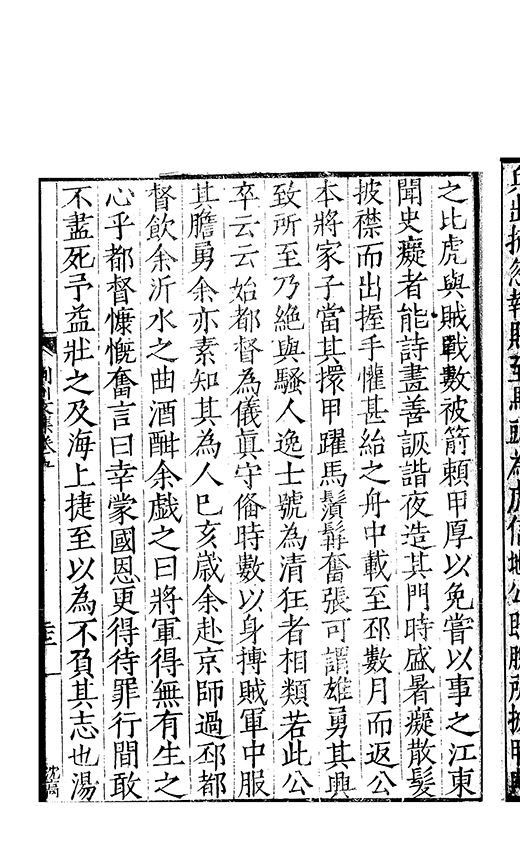 兵出
之比虎與賊戰數被箭賴甲厚以免嘗以事之江東
聞史癡者能詩畫善詼諧夜造其門時盛暑癡散髮
披襟而出握手懽甚紿之舟中載至邳數月而返公
本將家子當其擐甲躍馬鬚髯奮張可謂雄勇其興
致所至乃絶與騷人逸士號為清狂者相類若此公
卒云云始都督為儀眞守俻時數以身搏賊軍中服
其膽勇余亦素知其為人巳亥歳余赴京師過邳都
督飲余沂水之曲酒酣余戯之曰將軍得無有生之
心乎都督慷慨奮言曰幸蒙國恩更得待罪行間敢
不盡死予益壯之及海上捷至以為不負其志也湯
荆川文集卷五